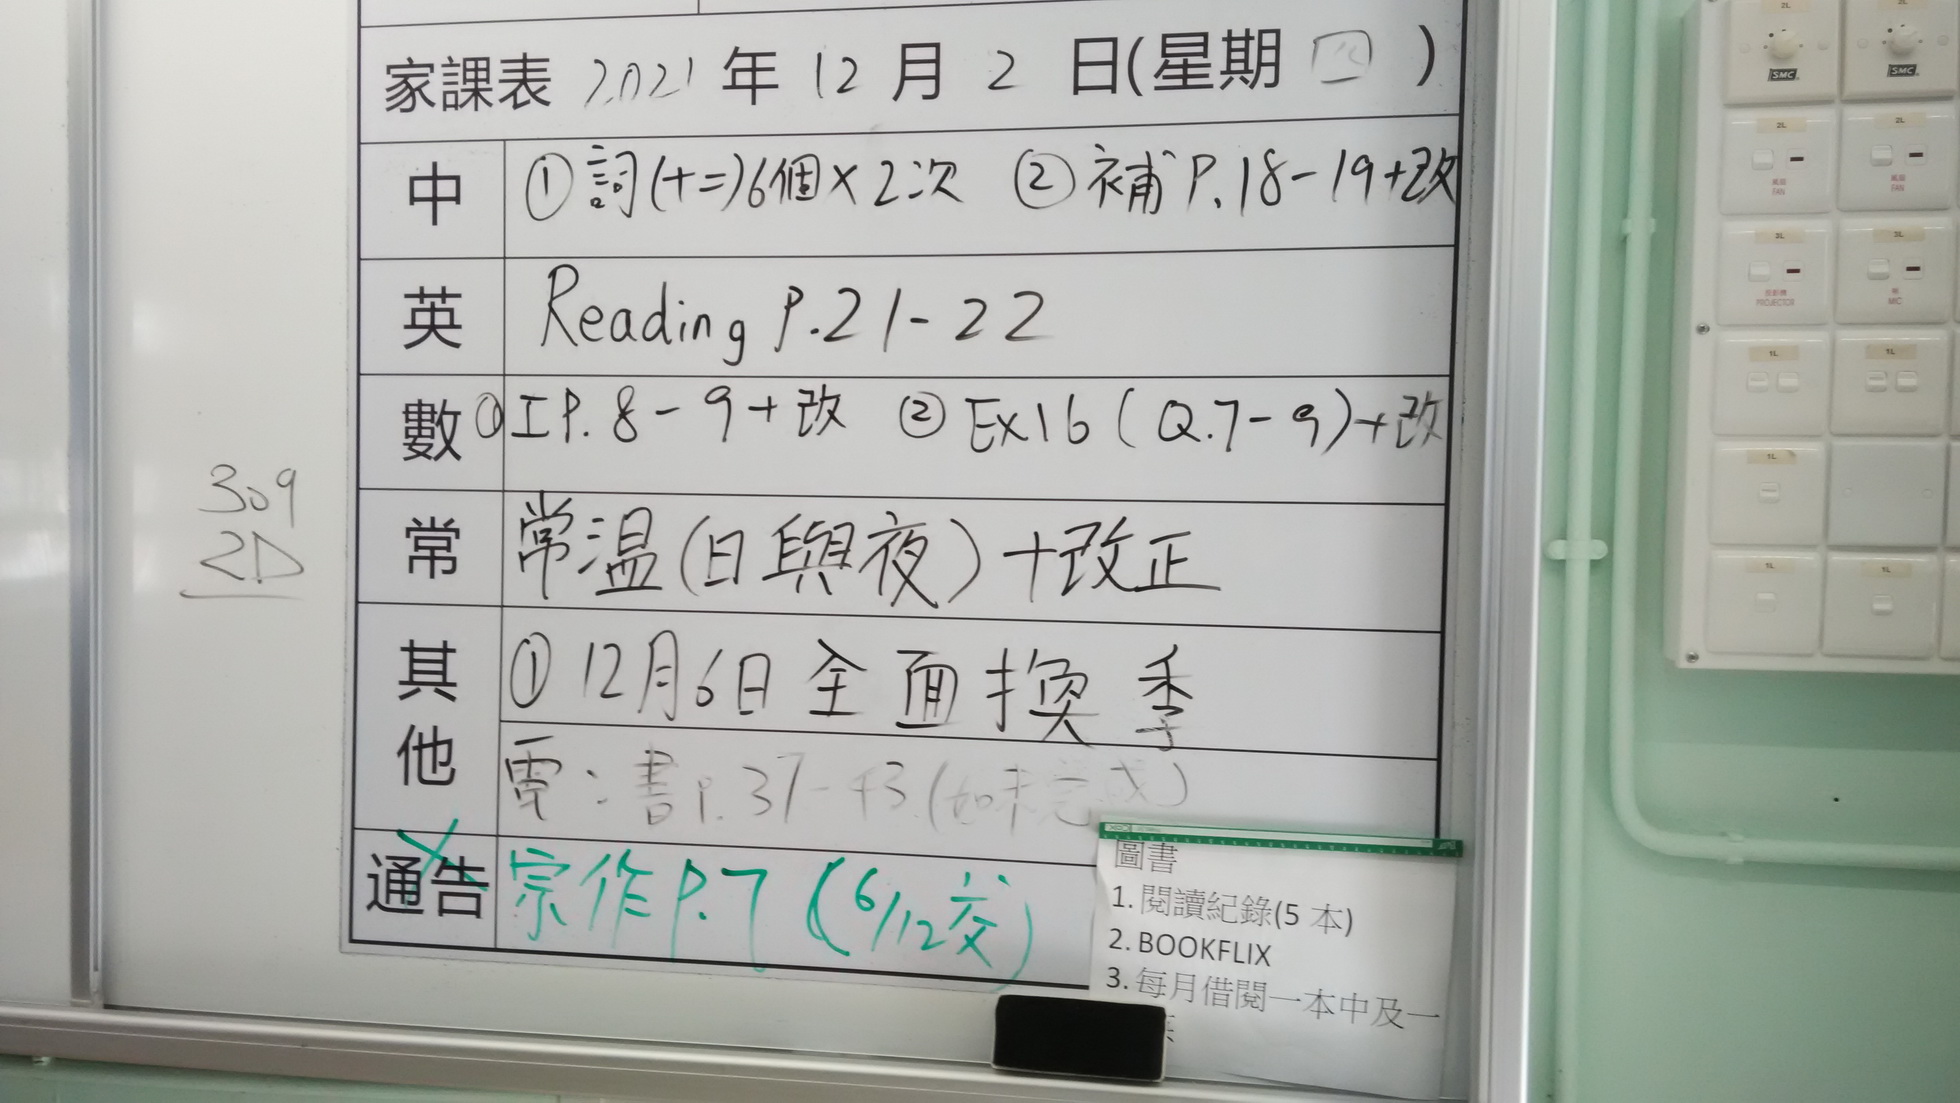 家課表 2021 年 12 月 2 日(星期 四 )
中 ①詞(十二)6個×2次 ②補P.18-19+改
英 Reading P.21-22
數 ①IP.8-9+改 ②Ex16(Q.7-9)+改
常 常温(日與夜)+改正
其他 ①12月6日全面換季
電:書P.37-43(如未完成)
通告 宗作P.7 (6/12交)
309
2D
圖書
1. 閱讀紀錄(5 本)
2. BOOKFLIX
3. 每月借閱一本中及一
2L
2L
SMC
SMC
2L
2L
風扇
FAN
風扇
FAN
2L
2L
投影機
PROJECTOR
MIC
1L
1L
1L
1L
1L